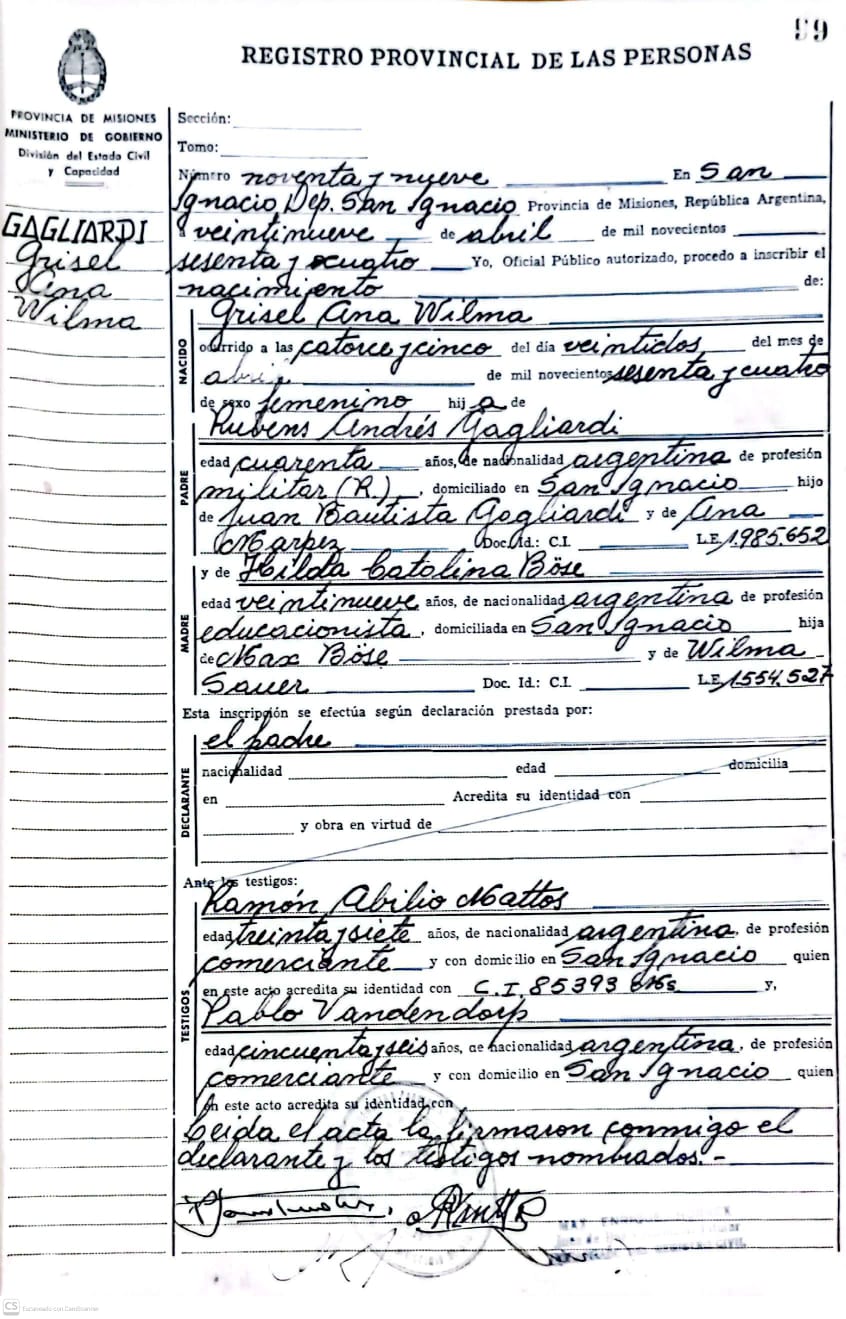 99
REGISTRO PROVINCIAL DE LAS PERSONAS
PROVINCIA DE MISIONES
MINISTERIO DE GOBIERNO
División del Estado Civil
y Capacidad
GAGLIARDI
Grisel
Ana
Wilma
Sección:
Tomo:
Número noventa y nueve En San
Ignacio Dep. San Ignacio Provincia de Misiones, República Argentina,
a veintinueve de abril de mil novecientos
sesenta y cuatro Yo, Oficial Público autorizado, procedo a inscribir el
nacimiento de:
NACIDO
Grisel Ana Wilma
ocurrido a las catorce y cinco del día veintidos del mes de
abril de mil novecientos sesenta y cuatro
de sexo femenino hij a de
PADRE
Rubens Andrés Gagliardi
edad cuarenta años, de nacionalidad argentina de profesión
militar (R.), domiciliado en San Ignacio hijo
de Juan Bautista Gagliardi y de Ana
Doc. Id.: C.I. L.E. 1.985.652
MADRE
y de Hilda Catalina Böse
edad veintinueve años, de nacionalidad argentina de profesión
educacionista, domiciliada en San Ignacio hija
de Max Böse y de Wilma
Sauer Doc. Id.: C.I. L.E. 1554.527
Esta inscripción se efectúa según declaración prestada por:
DECLARANTE
el padre
nacionalidad edad domicilia
en Acredita su identidad con
y obra en virtud de
Ante los testigos:
TESTIGOS
Ramón Abilio Mattos
edad treinta y siete años, de nacionalidad argentina, de profesión
comerciante y con domicilio en San Ignacio quien
en este acto acredita su identidad con C.I. 85393 y,
Pablo Vandendorp
edad cincuenta y seis años, de nacionalidad argentina, de profesión
comerciante y con domicilio en San Ignacio quien
en este acto acredita su identidad con
Leida el acta la firmaron conmigo el
declarante y los testigos nombrados.-
CS Escaneado con CamScanner